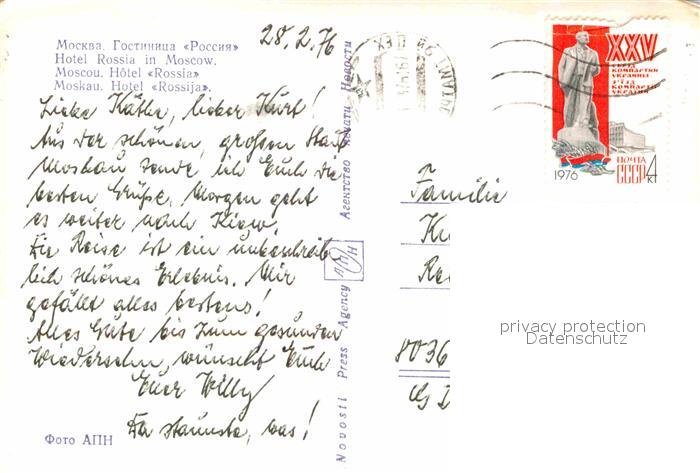 Москва. Гостиница «Россия»
Hotel Rossia in Moscow.
Moscou. Hôtel «Rossia»
Moskau. Hotel «Rossija».
28.2.76
Liebe Käthe, lieber Kurt!
Aus der schönen, großen Stadt
Moskau sende ich Euch die
besten Grüße. Morgen geht
es weiter nach Kiew.
Die Reise ist ein unbeschreib
lich schönes Erlebnis. Mir
gefällt alles bestens!
Alles Gute bis zum gesunden
Wiedersehn, wünscht Euch
Euer Willy
Da staunste, was!
Фото АПН
Novosti Press Agency АПН Агентство печати Новости
XXV
з'їзд
компартии
украины
з'їзд
компартії
україни
1976
ПОЧТА
СССР
4
к
Familie
Ku
Re
8036
privacy protection
Datenschutz